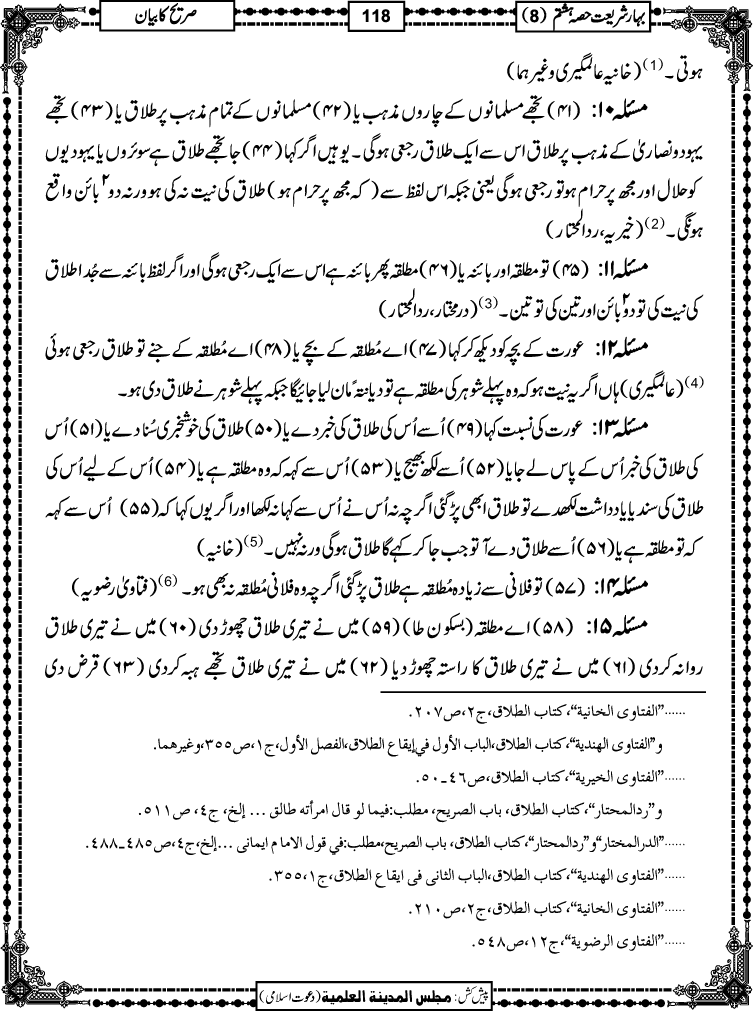 بہار شریعت حصہ ہشتم (8)
118
صریح کا بیان
ہوتی ۔(1) (خانیہ عالمگیری وغیرہما)
مسئلہ ۱۰: (۴۱) تجھے مسلمانوں کے چاروں مذہب یا (۴۲) مسلمانوں کے تمام مذہب پر طلاق یا (۴۳) تجھے
یہود و نصاریٰ کے مذہب پر طلاق اس سے ایک طلاق رجعی ہوگی ۔ یوہیں اگر کہا (۴۴) جا تجھے طلاق ہے سوئروں یا یہودیوں
کو حلال اور مجھ پر حرام ہو تو رجعی ہوگی یعنی جبکہ اس لفظ سے ( کہ مجھ پر حرام ہو ) طلاق کی نیت نہ کی ہو ورنہ دو۲ بائن واقع
ہونگی ۔(2) (خیریہ، ردالمحتار)
مسئلہ ۱۱: (۴۵) تو مطلقہ اور بائنہ یا (۴۶) مطلقہ پھر بائنہ ہے اس سے ایک رجعی ہوگی اور اگر لفظ بائنہ سے جُدا طلاق
کی نیت کی تو دو۲ بائن اور تین کی تو تین ۔(3) (درمختار، ردالمحتار)
مسئلہ ۱۲: عورت کے بچہ کو دیکھ کر کہا (۴۷) اے مُطلقہ کے بچے یا (۴۸) اے مُطلقہ کے جنے تو طلاق رجعی ہوئی
(4) (عالمگیری) ہاں اگر یہ نیت ہو کہ وہ پہلے شوہر کی مطلقہ ہے تو دیانتہً مان لیا جائیگا جبکہ پہلے شوہر نے طلاق دی ہو۔
مسئلہ ۱۳: عورت کی نسبت کہا (۴۹) اُسے اُس کی طلاق کی خبر دے یا (۵۰) طلاق کی خوشخبری سُنا دے یا (۵۱) اُس
کی طلاق کی خبر اُس کے پاس لے جا یا (۵۲) اُسے لکھ بھیج یا (۵۳) اُس سے کہہ کہ وہ مطلقہ ہے یا (۵۴) اُس کے لیے اُس کی
طلاق کی سند یا یادداشت لکھدے تو طلاق ابھی پڑ گئی اگرچہ نہ اُس نے اُس سے کہا نہ لکھا اور اگر یوں کہا کہ (۵۵) اُس سے کہہ
کہ تو مطلقہ ہے یا (۵۶) اُسے طلاق دے آ تو جب جا کر کہے گا طلاق ہوگی ورنہ نہیں ۔(5) (خانیہ)
مسئلہ ۱۴: (۵۷) تو فلانی سے زیادہ مُطلقہ ہے طلاق پڑ گئی اگرچہ وہ فلانی مُطلقہ نہ بھی ہو۔ (6) (فتاویٰ رضویہ)
مسئلہ ۱۵: (۵۸) اے مطلقہ (بسکون طا) (۵۹) میں نے تیری طلاق چھوڑ دی (۶۰) میں نے تیری طلاق
روانہ کر دی (۶۱) میں نے تیری طلاق کا راستہ چھوڑ دیا (۶۲) میں نے تیری طلاق تجھے ہبہ کر دی (۶۳) قرض دی
......”الفتاوى الخانية“، كتاب الطلاق، ج٢، ص٢٠٧.
و”الفتاوى الهندية“، كتاب الطلاق، الباب الأول في إيقاع الطلاق، الفصل الأول، ج١، ص٣٥٥، وغيرهما.
......”الفتاوى الخيرية“، كتاب الطلاق، ص٤٦-٥٠.
و”ردالمحتار“، كتاب الطلاق، باب الصريح، مطلب: فيما لو قال امرأته طالق ... إلخ، ج٤، ص٥١١.
......”الدرالمختار“ و”ردالمحتار“، كتاب الطلاق، باب الصريح، مطلب: في قول الامام ايمانى ...إلخ، ج٤، ص٤٨٥-٤٨٨.
......”الفتاوى الهندية“، كتاب الطلاق، الباب الثانى فى ايقاع الطلاق، ج١، ٣٥٥.
......”الفتاوى الخانية“، كتاب الطلاق، ج٢، ص٢١٠.
......”الفتاوى الرضوية“، ج١٢، ص٥٤٨.
پیش کش: مجلس المدینة العلمیة (دعوت اسلامی)